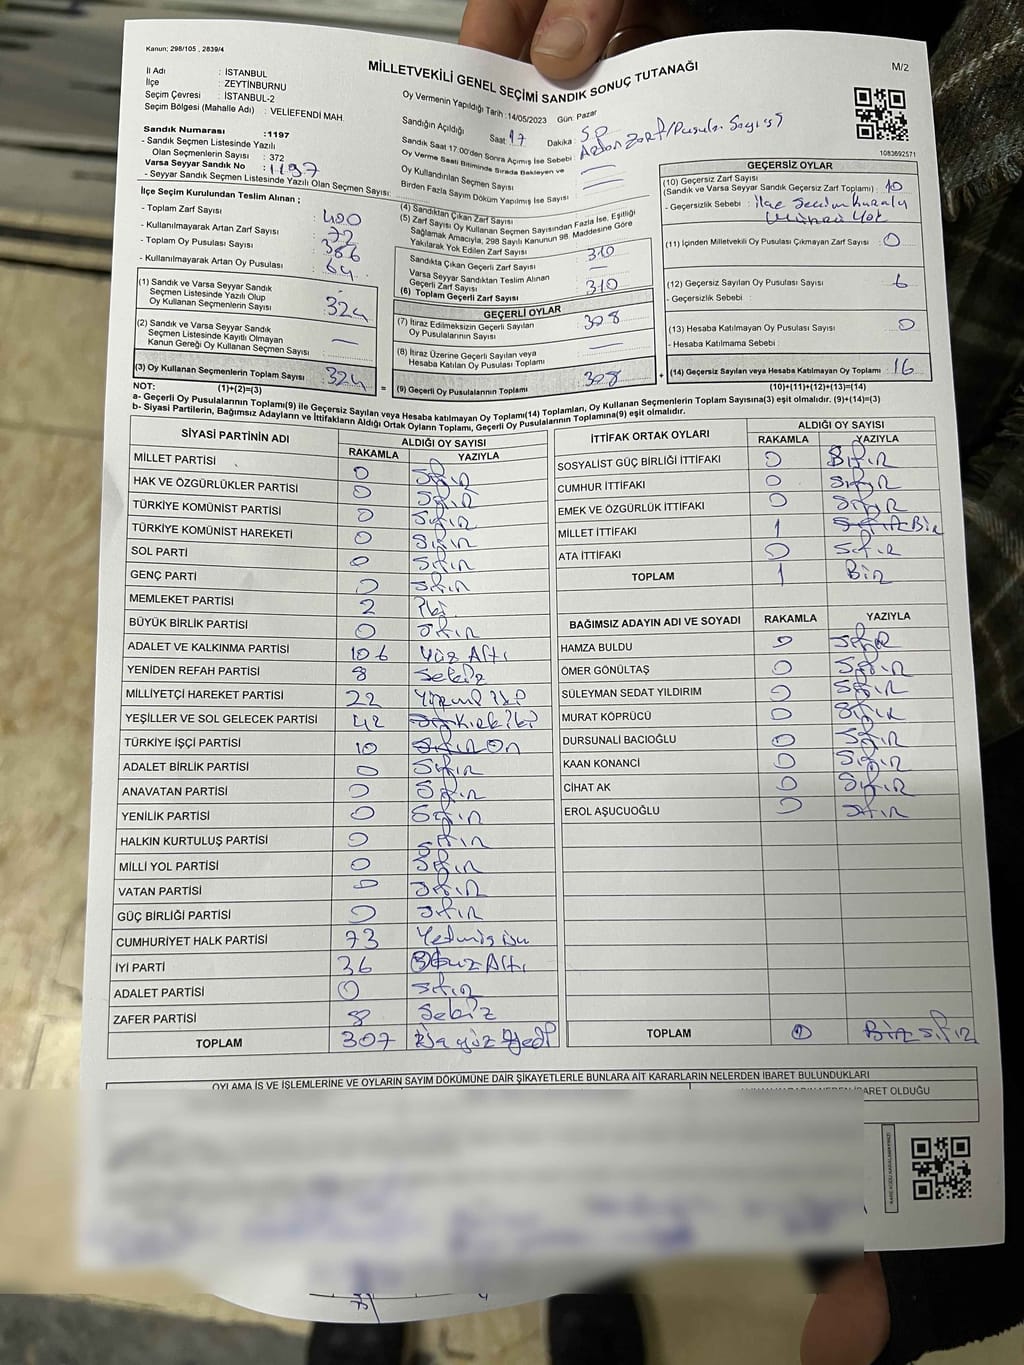 Kanun; 298/105 , 2839/4
MİLLETVEKİLİ GENEL SEÇİMİ SANDIK SONUÇ TUTANAĞI
M/2
İl Adı : İSTANBUL
İlçe : ZEYTİNBURNU
Seçim Çevresi : İSTANBUL-2
Seçim Bölgesi (Mahalle Adı) : VELİEFENDİ MAH.
Sandık Numarası :1197
- Sandık Seçmen Listesinde Yazılı
Olan Seçmenlerin Sayısı : 372
Varsa Seyyar Sandık No : 1197
- Seyyar Sandık Seçmen Listesinde Yazılı Olan Seçmen Sayısı:
İlçe Seçim Kurulundan Teslim Alınan ;
- Toplam Zarf Sayısı : 400
- Kullanılmayarak Artan Zarf Sayısı : 72
- Toplam Oy Pusulası Sayısı : 386
- Kullanılmayarak Artan Oy Pusulası : 64
(1) Sandık ve Varsa Seyyar Sandık
Seçmen Listesinde Yazılı Olup
Oy Kullanan Seçmenlerin Sayısı : 324
(2) Sandık ve Varsa Seyyar Sandık
Seçmen Listesinde Kayıtlı Olmayan
Kanun Gereği Oy Kullanan Seçmen Sayısı : —
(3) Oy Kullanan Seçmenlerin Toplam Sayısı : 324
Oy Vermenin Yapıldığı Tarih :14/05/2023 Gün: Pazar
Sandığın Açıldığı Saat 17 Dakika :
Sandık Saat 17:00'den Sonra Açılmış İse Sebebi :
Oy Verme Saati Bitiminde Sırada Bekleyen ve
Oy Kullandırılan Seçmen Sayısı : —
Birden Fazla Sayım Döküm Yapılmış İse Sayısı : —
(4) Sandıktan Çıkan Zarf Sayısı
(5) Zarf Sayısı Oy Kullanan Seçmen Sayısından Fazla İse, Eşitliği
Sağlamak Amacıyla, 298 Sayılı Kanunun 98. Maddesine Göre
Yakılarak Yok Edilen Zarf Sayısı
Sandıkta Çıkan Geçerli Zarf Sayısı : 310
Varsa Seyyar Sandıktan Teslim Alınan
Geçerli Zarf Sayısı : —
(6) Toplam Geçerli Zarf Sayısı : 310
GEÇERLİ OYLAR
(7) İtiraz Edilmeksizin Geçerli Sayılan
Oy Pusulalarının Sayısı : 308
(8) İtiraz Üzerine Geçerli Sayılan veya
Hesaba Katılan Oy Pusulası Toplamı : —
= (9) Geçerli Oy Pusulalarının Toplamı : 308
1083692571
GEÇERSİZ OYLAR
(10) Geçersiz Zarf Sayısı
(Sandık ve Varsa Seyyar Sandık Geçersiz Zarf Toplamı) : 10
- Geçersizlik Sebebi : İlçe Seçim Kurulu
Mührü Yok
(11) İçinden Milletvekili Oy Pusulası Çıkmayan Zarf Sayısı : 0
(12) Geçersiz Sayılan Oy Pusulası Sayısı : 6
- Geçersizlik Sebebi :
(13) Hesaba Katılmayan Oy Pusulası Sayısı : 0
- Hesaba Katılmama Sebebi :
+ (14) Geçersiz Sayılan veya Hesaba Katılmayan Oy Toplamı : 16
NOT: (1)+(2)=(3) (10)+(11)+(12)+(13)=(14)
a- Geçerli Oy Pusulalarının Toplamı(9) ile Geçersiz Sayılan veya Hesaba katılmayan Oy Toplamı(14) Toplamları, Oy Kullanan Seçmenlerin Toplam Sayısına(3) eşit olmalıdır. (9)+(14)=(3)
b- Siyasi Partilerin, Bağımsız Adayların ve İttifakların Aldığı Ortak Oyların Toplamı, Geçerli Oy Pusulalarının Toplamına(9) eşit olmalıdır.
SİYASİ PARTİNİN ADI ALDIĞI OY SAYISI
RAKAMLA YAZIYLA
MİLLET PARTİSİ 0 Sıfır
HAK VE ÖZGÜRLÜKLER PARTİSİ 0 Sıfır
TÜRKİYE KOMÜNİST PARTİSİ 0 Sıfır
TÜRKİYE KOMÜNİST HAREKETİ 0 Sıfır
SOL PARTİ 0 Sıfır
GENÇ PARTİ 0 Sıfır
MEMLEKET PARTİSİ 2 İki
BÜYÜK BİRLİK PARTİSİ 0 Sıfır
ADALET VE KALKINMA PARTİSİ 106 Yüz Altı
YENİDEN REFAH PARTİSİ 8 Sekiz
MİLLİYETÇİ HAREKET PARTİSİ 22 Yirmi İki
YEŞİLLER VE SOL GELECEK PARTİSİ 42 Kırk İki
TÜRKİYE İŞÇİ PARTİSİ 10 Sıfır On
ADALET BİRLİK PARTİSİ 0 Sıfır
ANAVATAN PARTİSİ 0 Sıfır
YENİLİK PARTİSİ 0 Sıfır
HALKIN KURTULUŞ PARTİSİ 0 Sıfır
MİLLİ YOL PARTİSİ 0 Sıfır
VATAN PARTİSİ 0 Sıfır
GÜÇ BİRLİĞİ PARTİSİ 0 Sıfır
CUMHURİYET HALK PARTİSİ 73 Yetmiş üç
İYİ PARTİ 36 Otuz Altı
ADALET PARTİSİ 0 Sıfır
ZAFER PARTİSİ 8 Sekiz
TOPLAM 307 Üç yüz Yedi
İTTİFAK ORTAK OYLARI ALDIĞI OY SAYISI
RAKAMLA YAZIYLA
SOSYALİST GÜÇ BİRLİĞİ İTTİFAKI 0 Sıfır
CUMHUR İTTİFAKI 0 Sıfır
EMEK VE ÖZGÜRLÜK İTTİFAKI 0 Sıfır
MİLLET İTTİFAKI 1 Sıfır Bir
ATA İTTİFAKI 0 Sıfır
TOPLAM 1 Bir
BAĞIMSIZ ADAYIN ADI VE SOYADI RAKAMLA YAZIYLA
HAMZA BULDU 0 Sıfır
ÖMER GÖNÜLTAŞ 0 Sıfır
SÜLEYMAN SEDAT YILDIRIM 0 Sıfır
MURAT KÖPRÜCÜ 0 Sıfır
DURSUNALİ BACIOĞLU 0 Sıfır
KAAN KONANCİ 0 Sıfır
CİHAT AK 0 Sıfır
EROL AŞUCUOĞLU 0 Sıfır
TOPLAM Bir sıfır
OYLAMA İŞ VE İŞLEMLERİNE VE OYLARIN SAYIM DÖKÜMÜNE DAİR ŞİKAYETLERLE BUNLARA AİT KARARLARIN NELERDEN İBARET BULUNDUKLARI
İBARET OLDUĞU